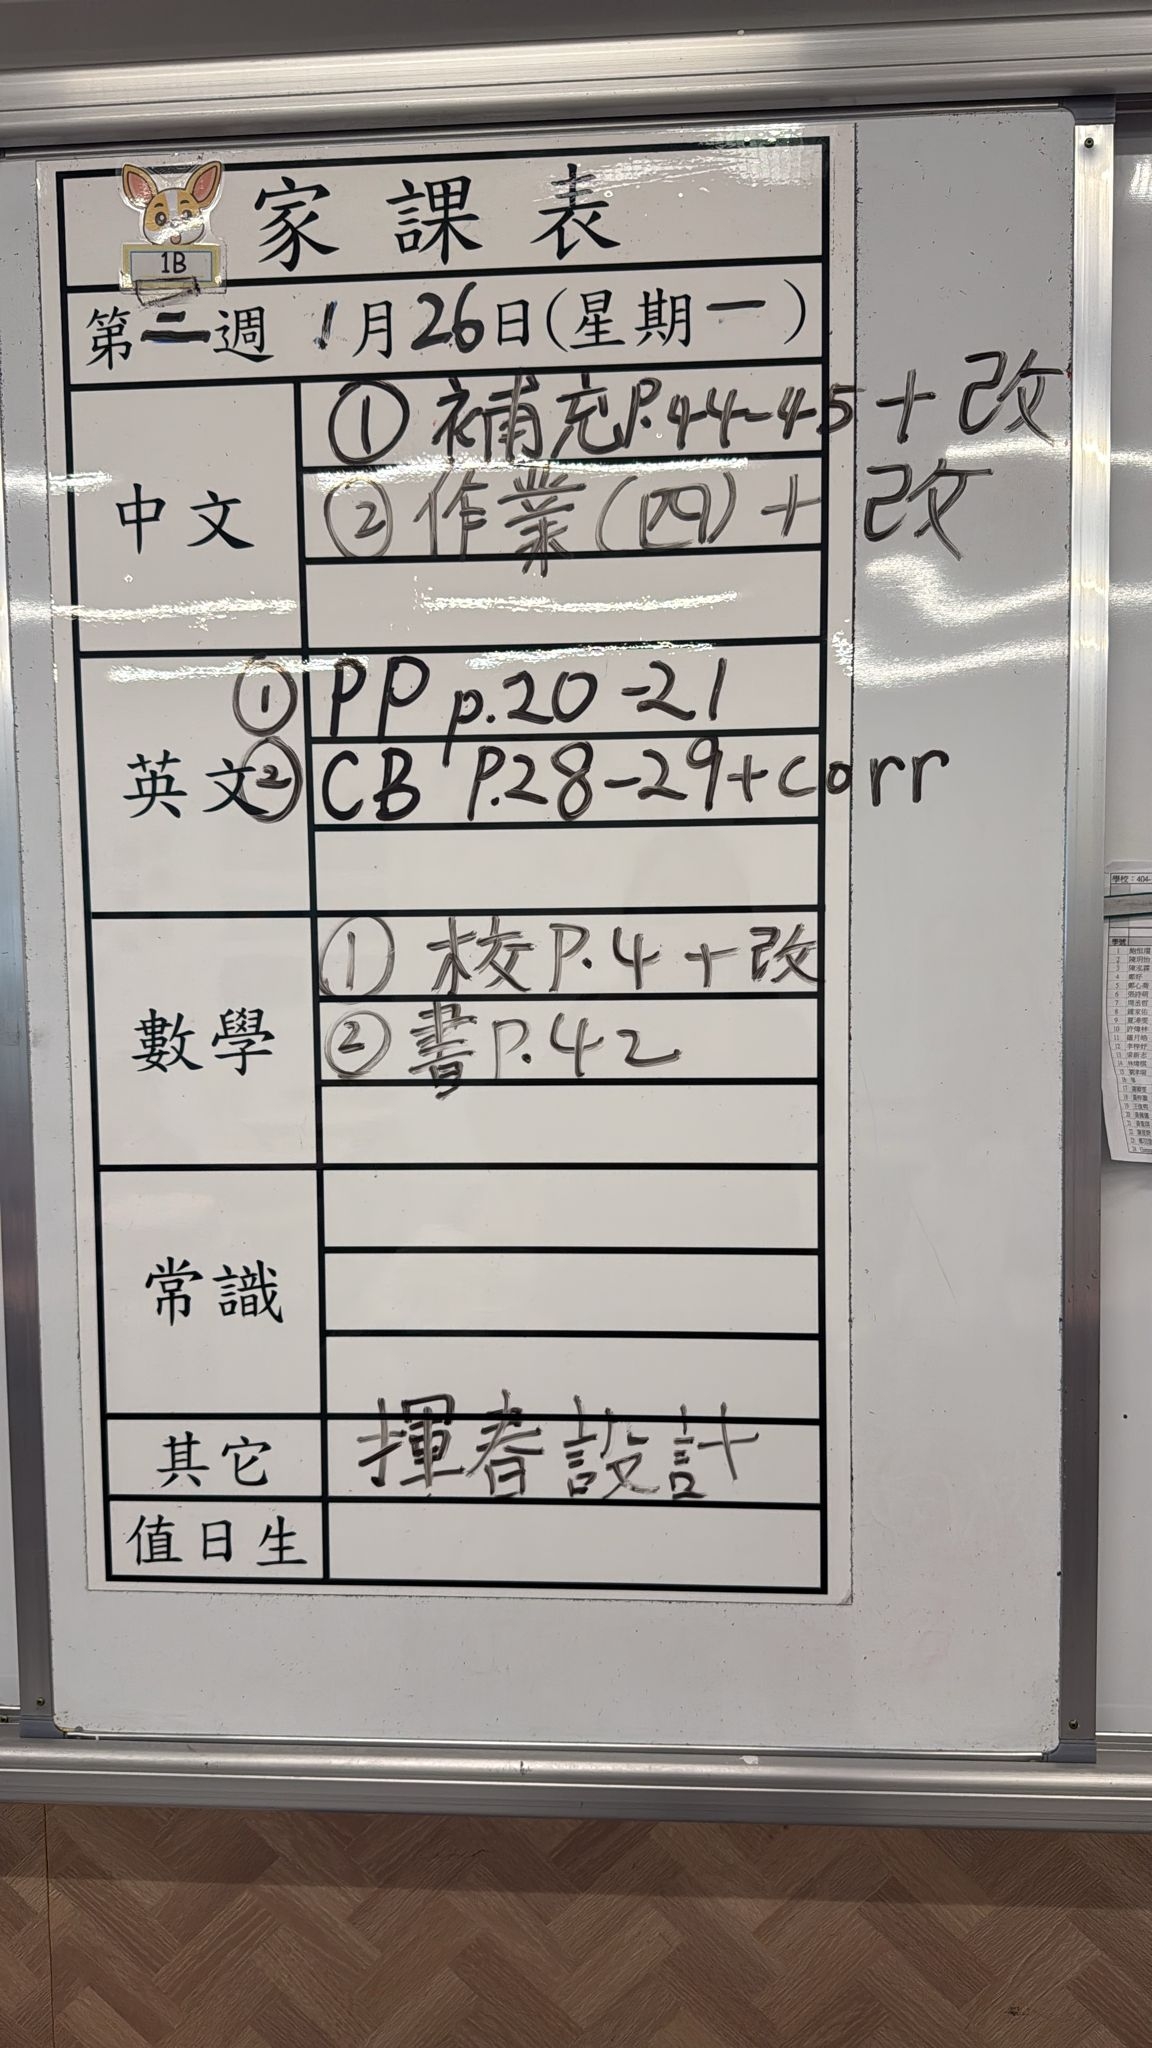 1B
家課表
第二週 1月26日(星期一)
中文
① 補充P.44-45+改
② 作業(四)+改
英文
① PP p.20-21
② CB P.28-29+corr
數學
① 校P.4+改
② 書P.42
常識
其它
揮春設計
值日生
學校:404-
學號